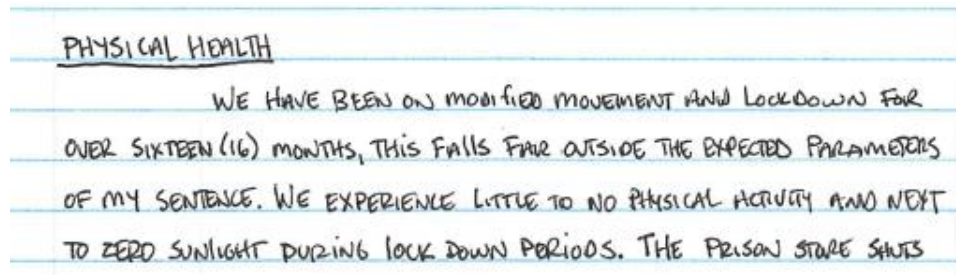 PHYSICAL HEALTH
WE HAVE BEEN ON MODIFIED MOVEMENT AND LOCKDOWN FOR
OVER SIXTEEN (16) MONTHS, THIS FALLS FAR OUTSIDE THE EXPECTED PARAMETERS
OF MY SENTENCE. WE EXPERIENCE LITTLE TO NO PHYSICAL ACTIVITY AND NEXT
TO ZERO SUNLIGHT DURING LOCK DOWN PERIODS. THE PRISON STORE SHUTS